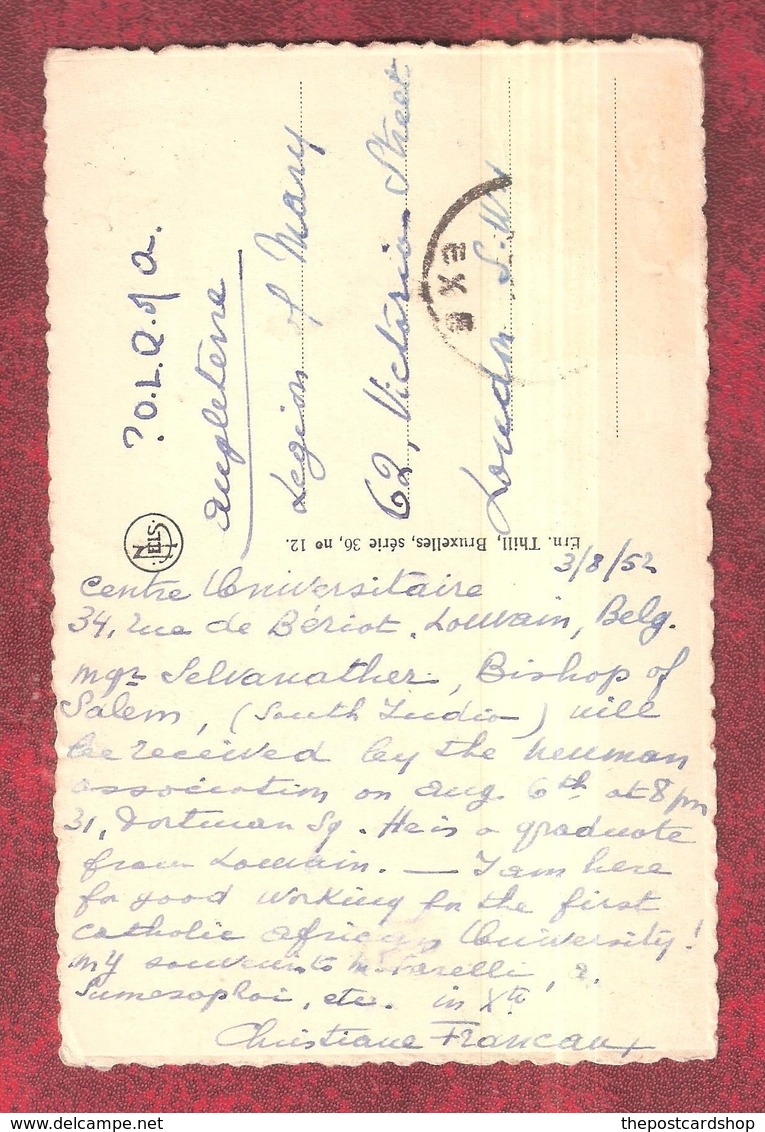 ? O.L.Q. of A.
Angleterre
Legion of Mary
62, Victoria Street
London S.W.1
NELS
Ern. Thill, Bruxelles, série 36, no 12.
3/8/52
Centre Universitaire
34, rue de Bériot, Louvain, Belg.
Mgr Selvanather, Bishop of
Salem, (South India) will
be received by the Newman
association on Aug. 6th at 8 pm
31, Portman Sq. He is a graduate
from Louvain. — I am here
for good working for the first
catholic african University!
My souvenir to M.
etc. in Xto
Christiane Francaux
thepostcardshop